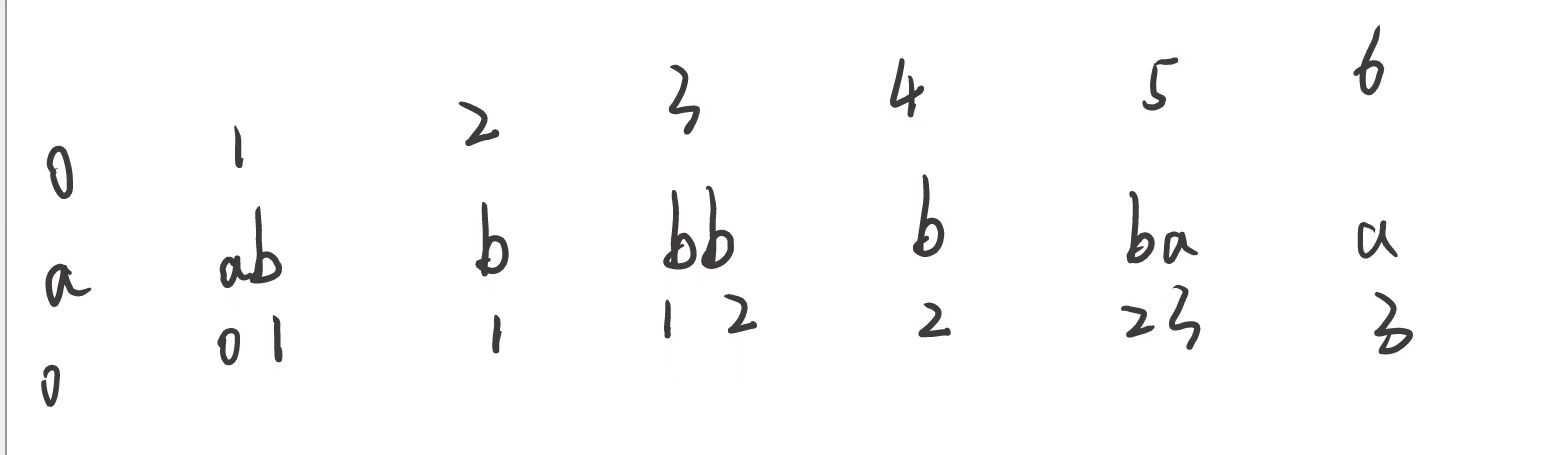 0 1 2 3 4 5 6
a ab b bb b ba a
0 01 1 1 2 2 23 3